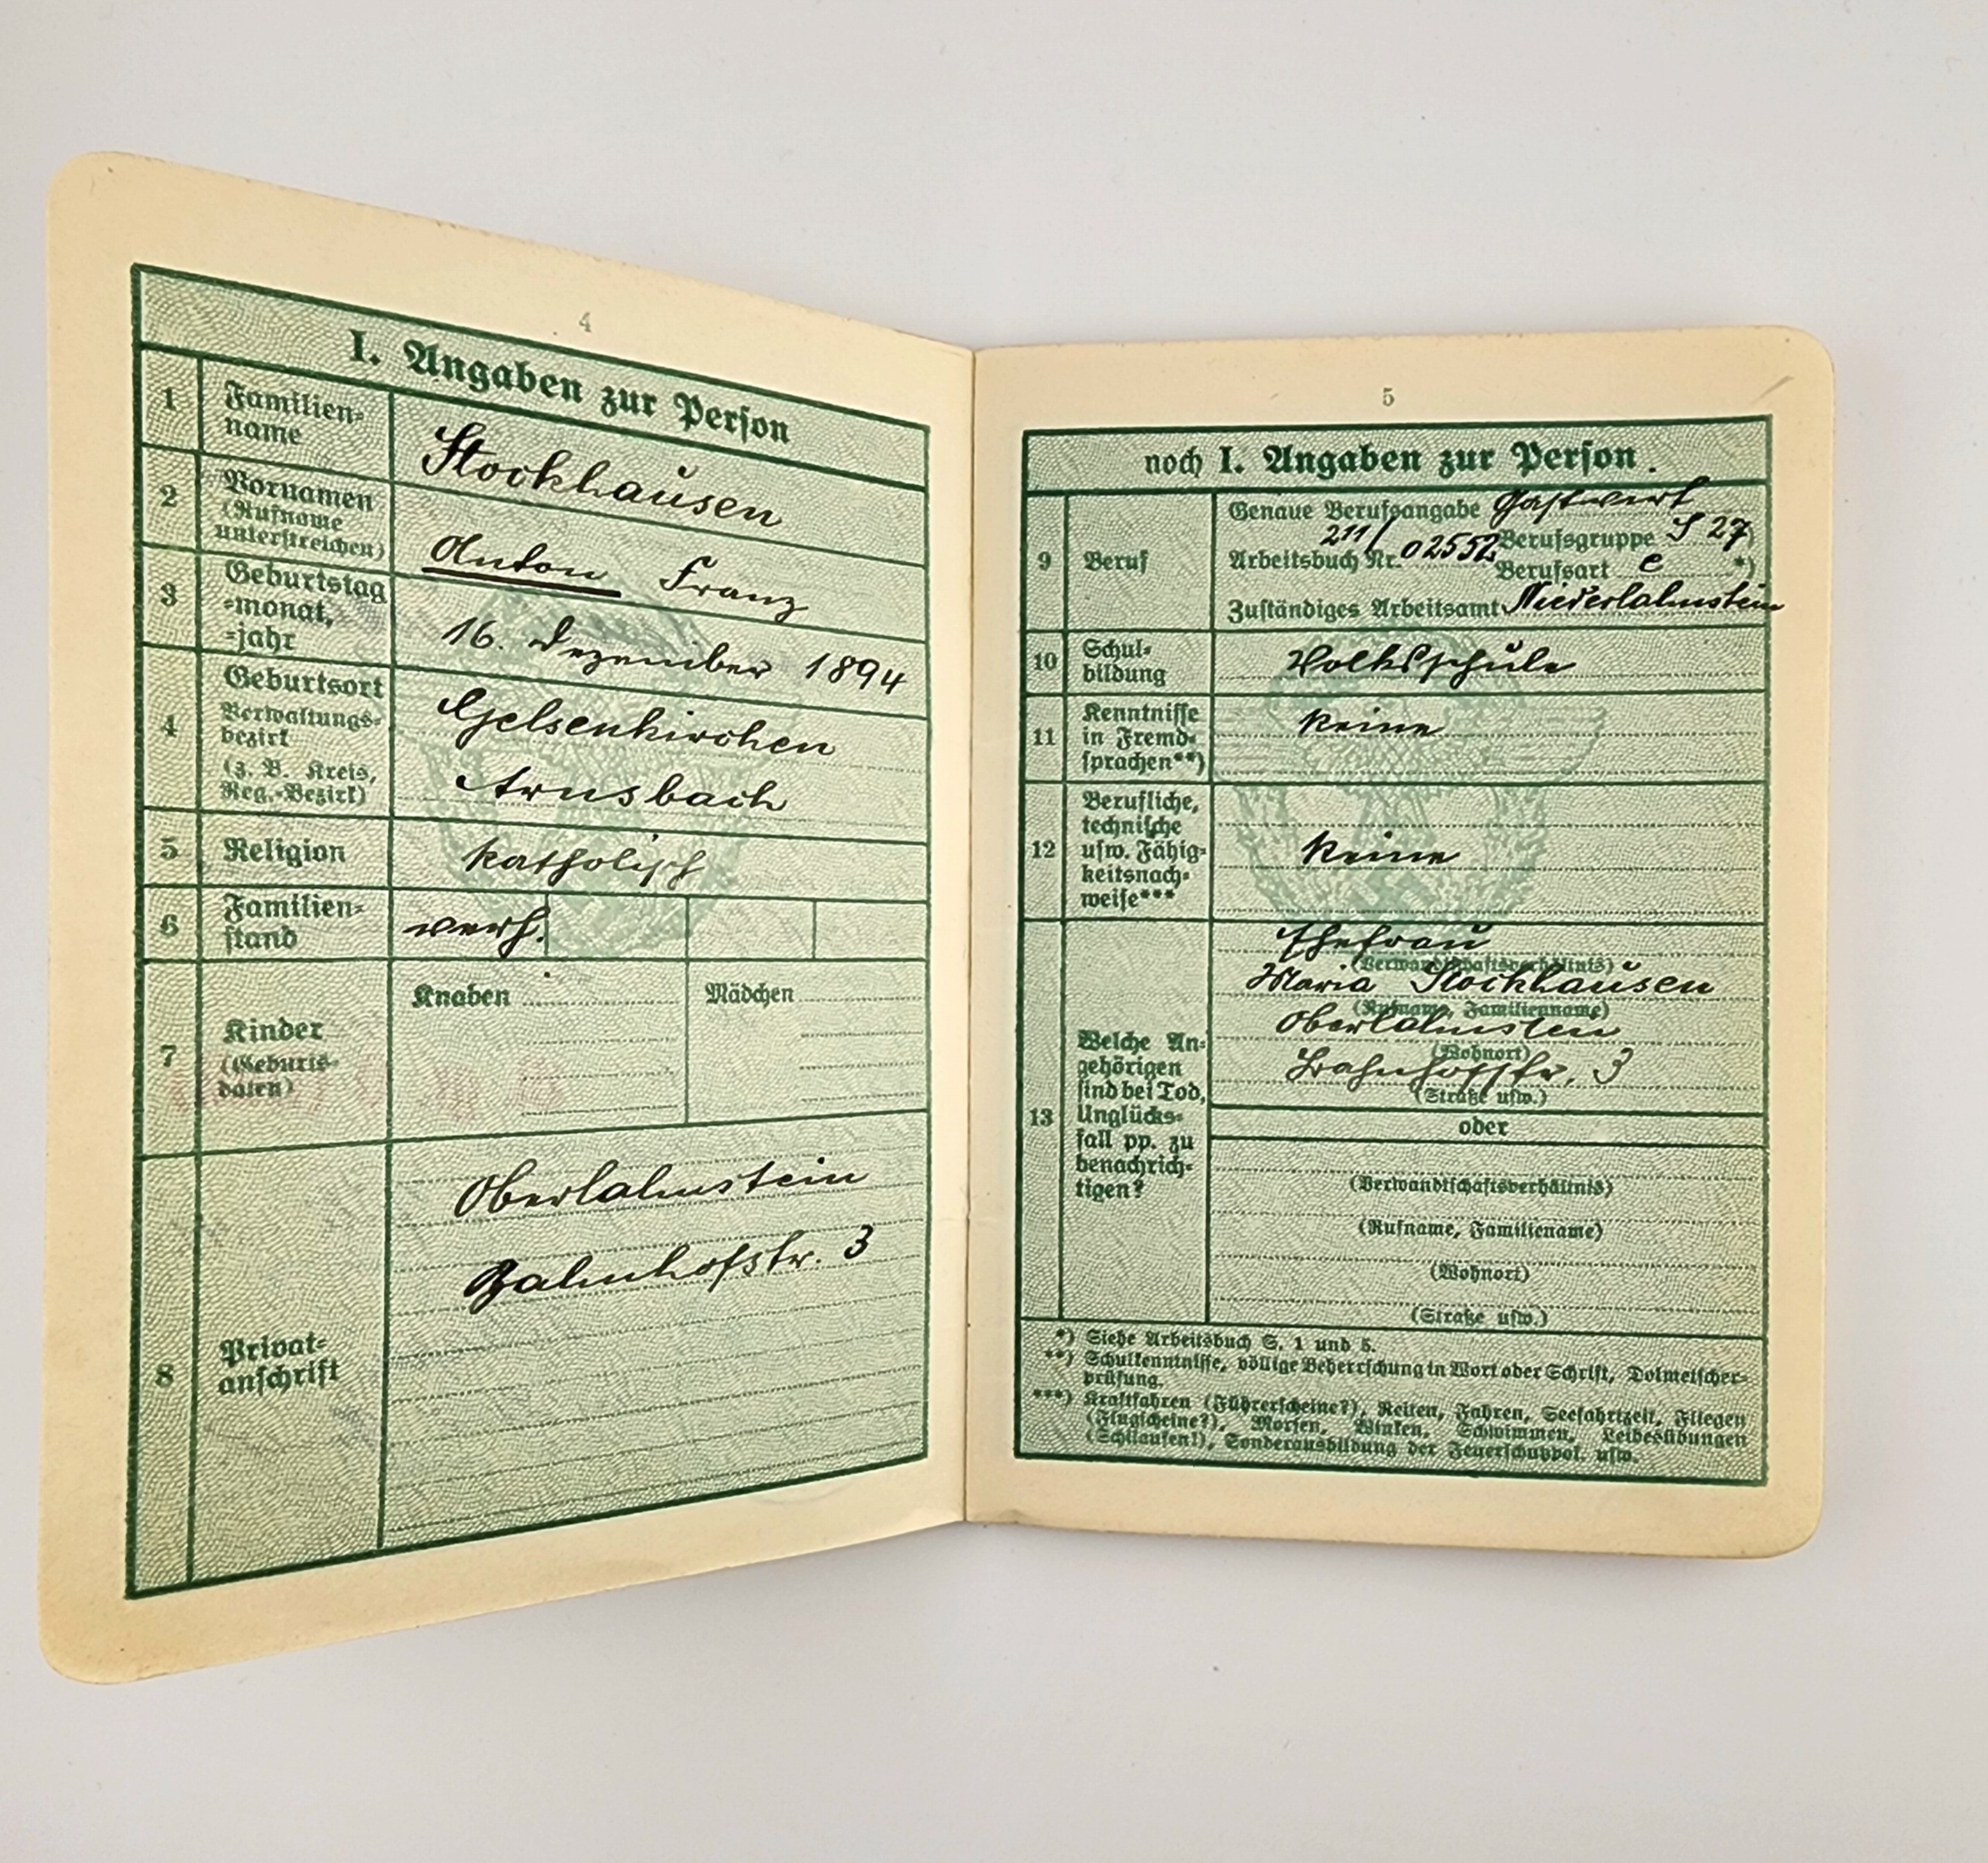 4
I. Angaben zur Person
1
Familien-
name
Stockhausen
2
Vornamen
(Rufname
unterstreichen)
Anton Franz
3
Geburtstag
-monat,
-jahr
16. Dezember 1894
4
Geburtsort
Verwaltungs-
bezirk
(z. B. Kreis,
Reg.-Bezirk)
Gelsenkirchen
Arnsbach
5
Religion
katholisch
6
Familien-
stand
verh.
7
Kinder
(Geburts-
daten)
Knaben
Mädchen
8
Privat-
anschrift
Oberlahnstein
Bahnhofstr. 3
5
noch I. Angaben zur Person.
9
Beruf
Genaue Berufsangabe Gastwirt
211/02552 Berufsgruppe S 27)
Arbeitsbuch Nr. Berufsart e *)
Zuständiges Arbeitsamt Niederlahnstein
10
Schul-
bildung
Volksschule
11
Kenntnisse
in Fremd-
sprachen**)
keine
12
Berufliche,
technische
usw. Fähig-
keitsnach-
weise***
keine
13
Welche An-
gehörigen
sind bei Tod,
Unglücks-
fall pp. zu
benachrich-
tigen?
Ehefrau
(Verwandtschaftsverhältnis)
Maria Stockhausen
(Rufname, Familienname)
Oberlahnstein
(Wohnort)
Bahnhofstr. 3
(Straße usw.)
oder
(Verwandtschaftsverhältnis)
(Rufname, Familienname)
(Wohnort)
(Straße usw.)
*) Siehe Arbeitsbuch S. 1 und 5.
**) Schulkenntnisse, völlige Beherrschung in Wort oder Schrift, Dolmetscher-
prüfung.
***) Kraftfahren (Führerscheine?), Reiten, Fahren, Seefahrtzeit, Fliegen
(Flugscheine?), Morsen, Winken, Schwimmen, Leibesübungen
(Schilaufen!), Sonderausbildung der Feuerschutzpol. usw.